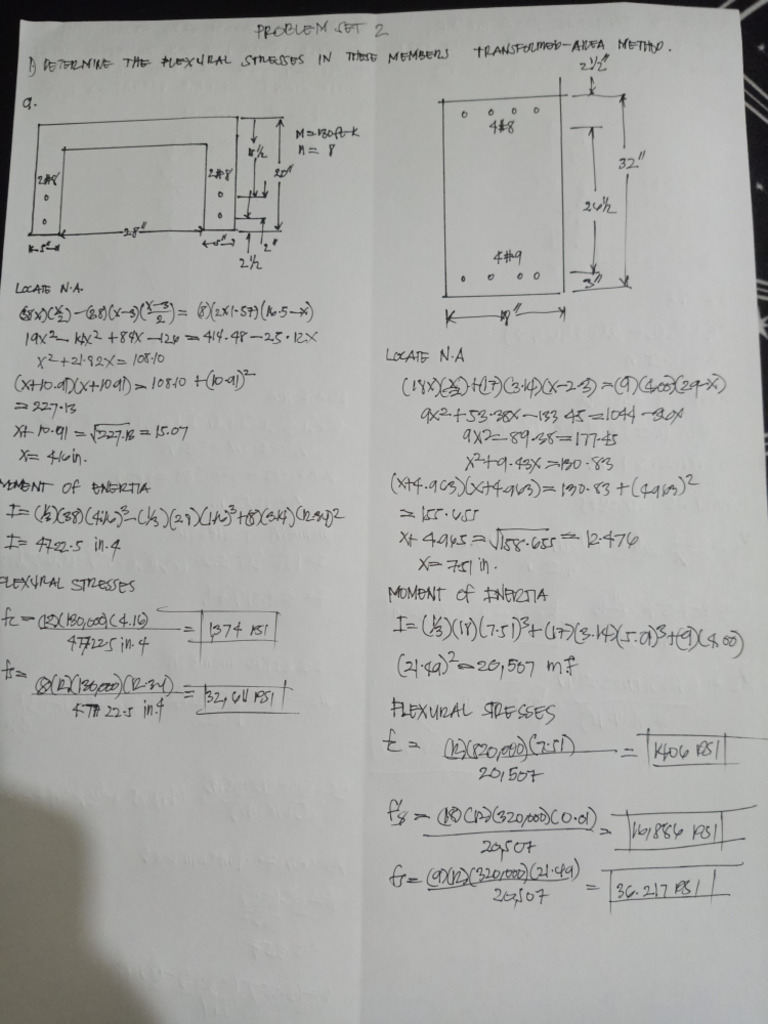 PROBLEM SET 2
1) DETERMINE THE FLEXURAL STRESSES IN THESE MEMBERS TRANSFORMED-AREA METHOD.
a.
M=130ft-k
n= 8
20"
2#8
2#8
28"
5"
5"
2"
2 1/2
LOCATE N.A.
(38x)(x/2) - (28)(x-3)(x-3/2) = (8)(2x1.57)(16.5-x)
19x² - 14x² + 84x - 126 = 414.48 - 25.12x
x² + 21.82x = 108.10
(x+10.91)(x+1091) = 108.10 + (10.91)²
= 227.13
x+ 10.91 = √227.13 = 15.07
x= 4.16in.
MOMENT OF INERTIA
I= (1/3)(38)(4.16)³ - (1/3)(28)(1.16)³ + (8)(3.14)(12.34)²
I= 4722.5 in.4
FLEXURAL STRESSES
fc = (12)(130,000)(4.16) / 4722.5 in.4 = 1,374 PSI
fs= (8)(12)(130,000)(12.34) / 4722.5 in.4 = 32,611 PSI
2 1/2"
4#8
32"
26 1/2
4#9
3"
18"
LOCATE N.A
(18x)(x/2) + (17)(3.14)(x-2.5) = (9)(4.00)(29-x)
9x² + 53.38x - 133.45 = 1044 - 36x
9x² - 89.38 = 177.45
x² + 9.93x = 130.83
(x+4.963)(x+4.963) = 130.83 + (4.963)²
= 155.455
x+ 4.965 = √155.655 = 12.476
x= 7.51 in.
MOMENT OF INERTIA
I= (1/3)(18)(7.51)³ + (17)(3.14)(5.01)³ + (9)(4.00)
(21.49)² = 20,507
FLEXURAL STRESSES
= (12)(320,000)(7.51) / 20,507 = 1406 PSI
f's = (18)(12)(320,000)(0.01) / 20,507 = 16,886 PSI
fs = (9)(12)(320,000)(21.49) / 20,507 = 36.217 PSI